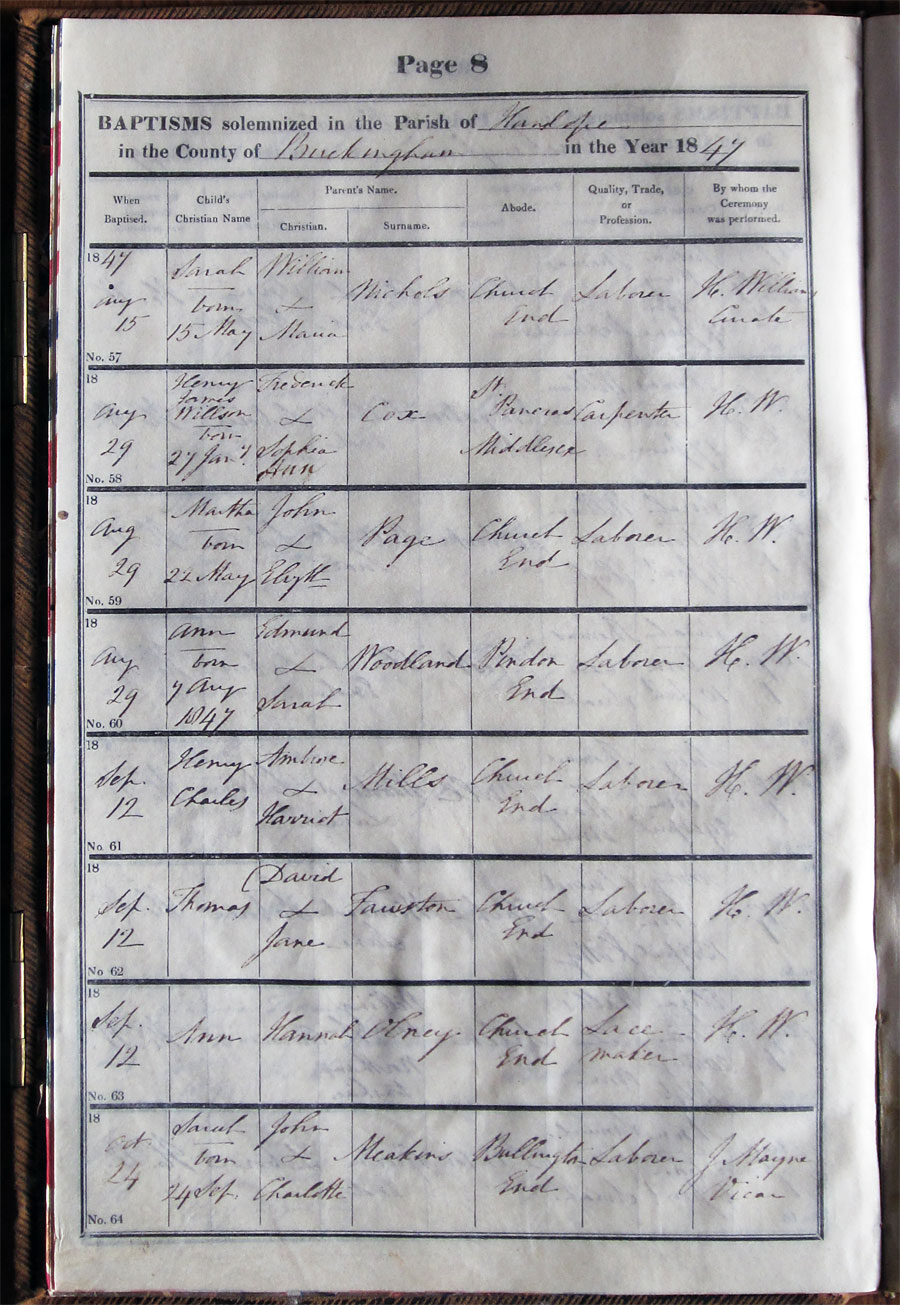 Page 8
BAPTISMS solemnized in the Parish of Hanslope
in the County of Buckingham in the Year 1847
When Baptised. Child's Christian Name Parent's Name. Christian. Surname. Abode. Quality, Trade, or Profession. By whom the Ceremony was performed.
1847
Aug 15
Sarah born 15 May
William & Maria
Nichols
Church End
Laborer
H. Williams Curate
No. 57
18
Aug 29
Henry James Willson born 27 Jany.
Frederick & Sophia Ann
Cox
St. Pancras Middlesex
Carpenter
H. W.
No. 58
18
Aug 29
Martha born 22 May
John & Elizth
Page
Church End
Laborer
H. W.
No. 59
18
Aug 29
Ann born 7 Aug 1847
Edmund & Sarah
Woodland
Pindon End
Laborer
H. W.
No. 60
18
Sep. 12
Henry Charles
Ambrose & Harriot
Mills
Church End
Laborer
H. W.
No. 61
18
Sep. 12
Thomas
David & Jane
Church End
Laborer
H. W.
No 62
18
Sep. 12
Ann
Hannah
Olney
Church End
Lace maker
H. W.
No. 63
18
Oct 24
Sarah born 24 Sep.
John & Charlotte
Meakins
Bullington End
Laborer
J Mayne Vicar
No. 64